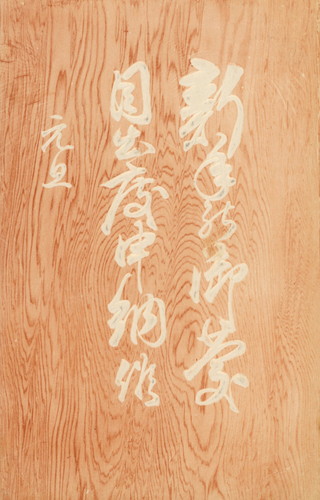 新年の御慶
目出度申納候
元旦